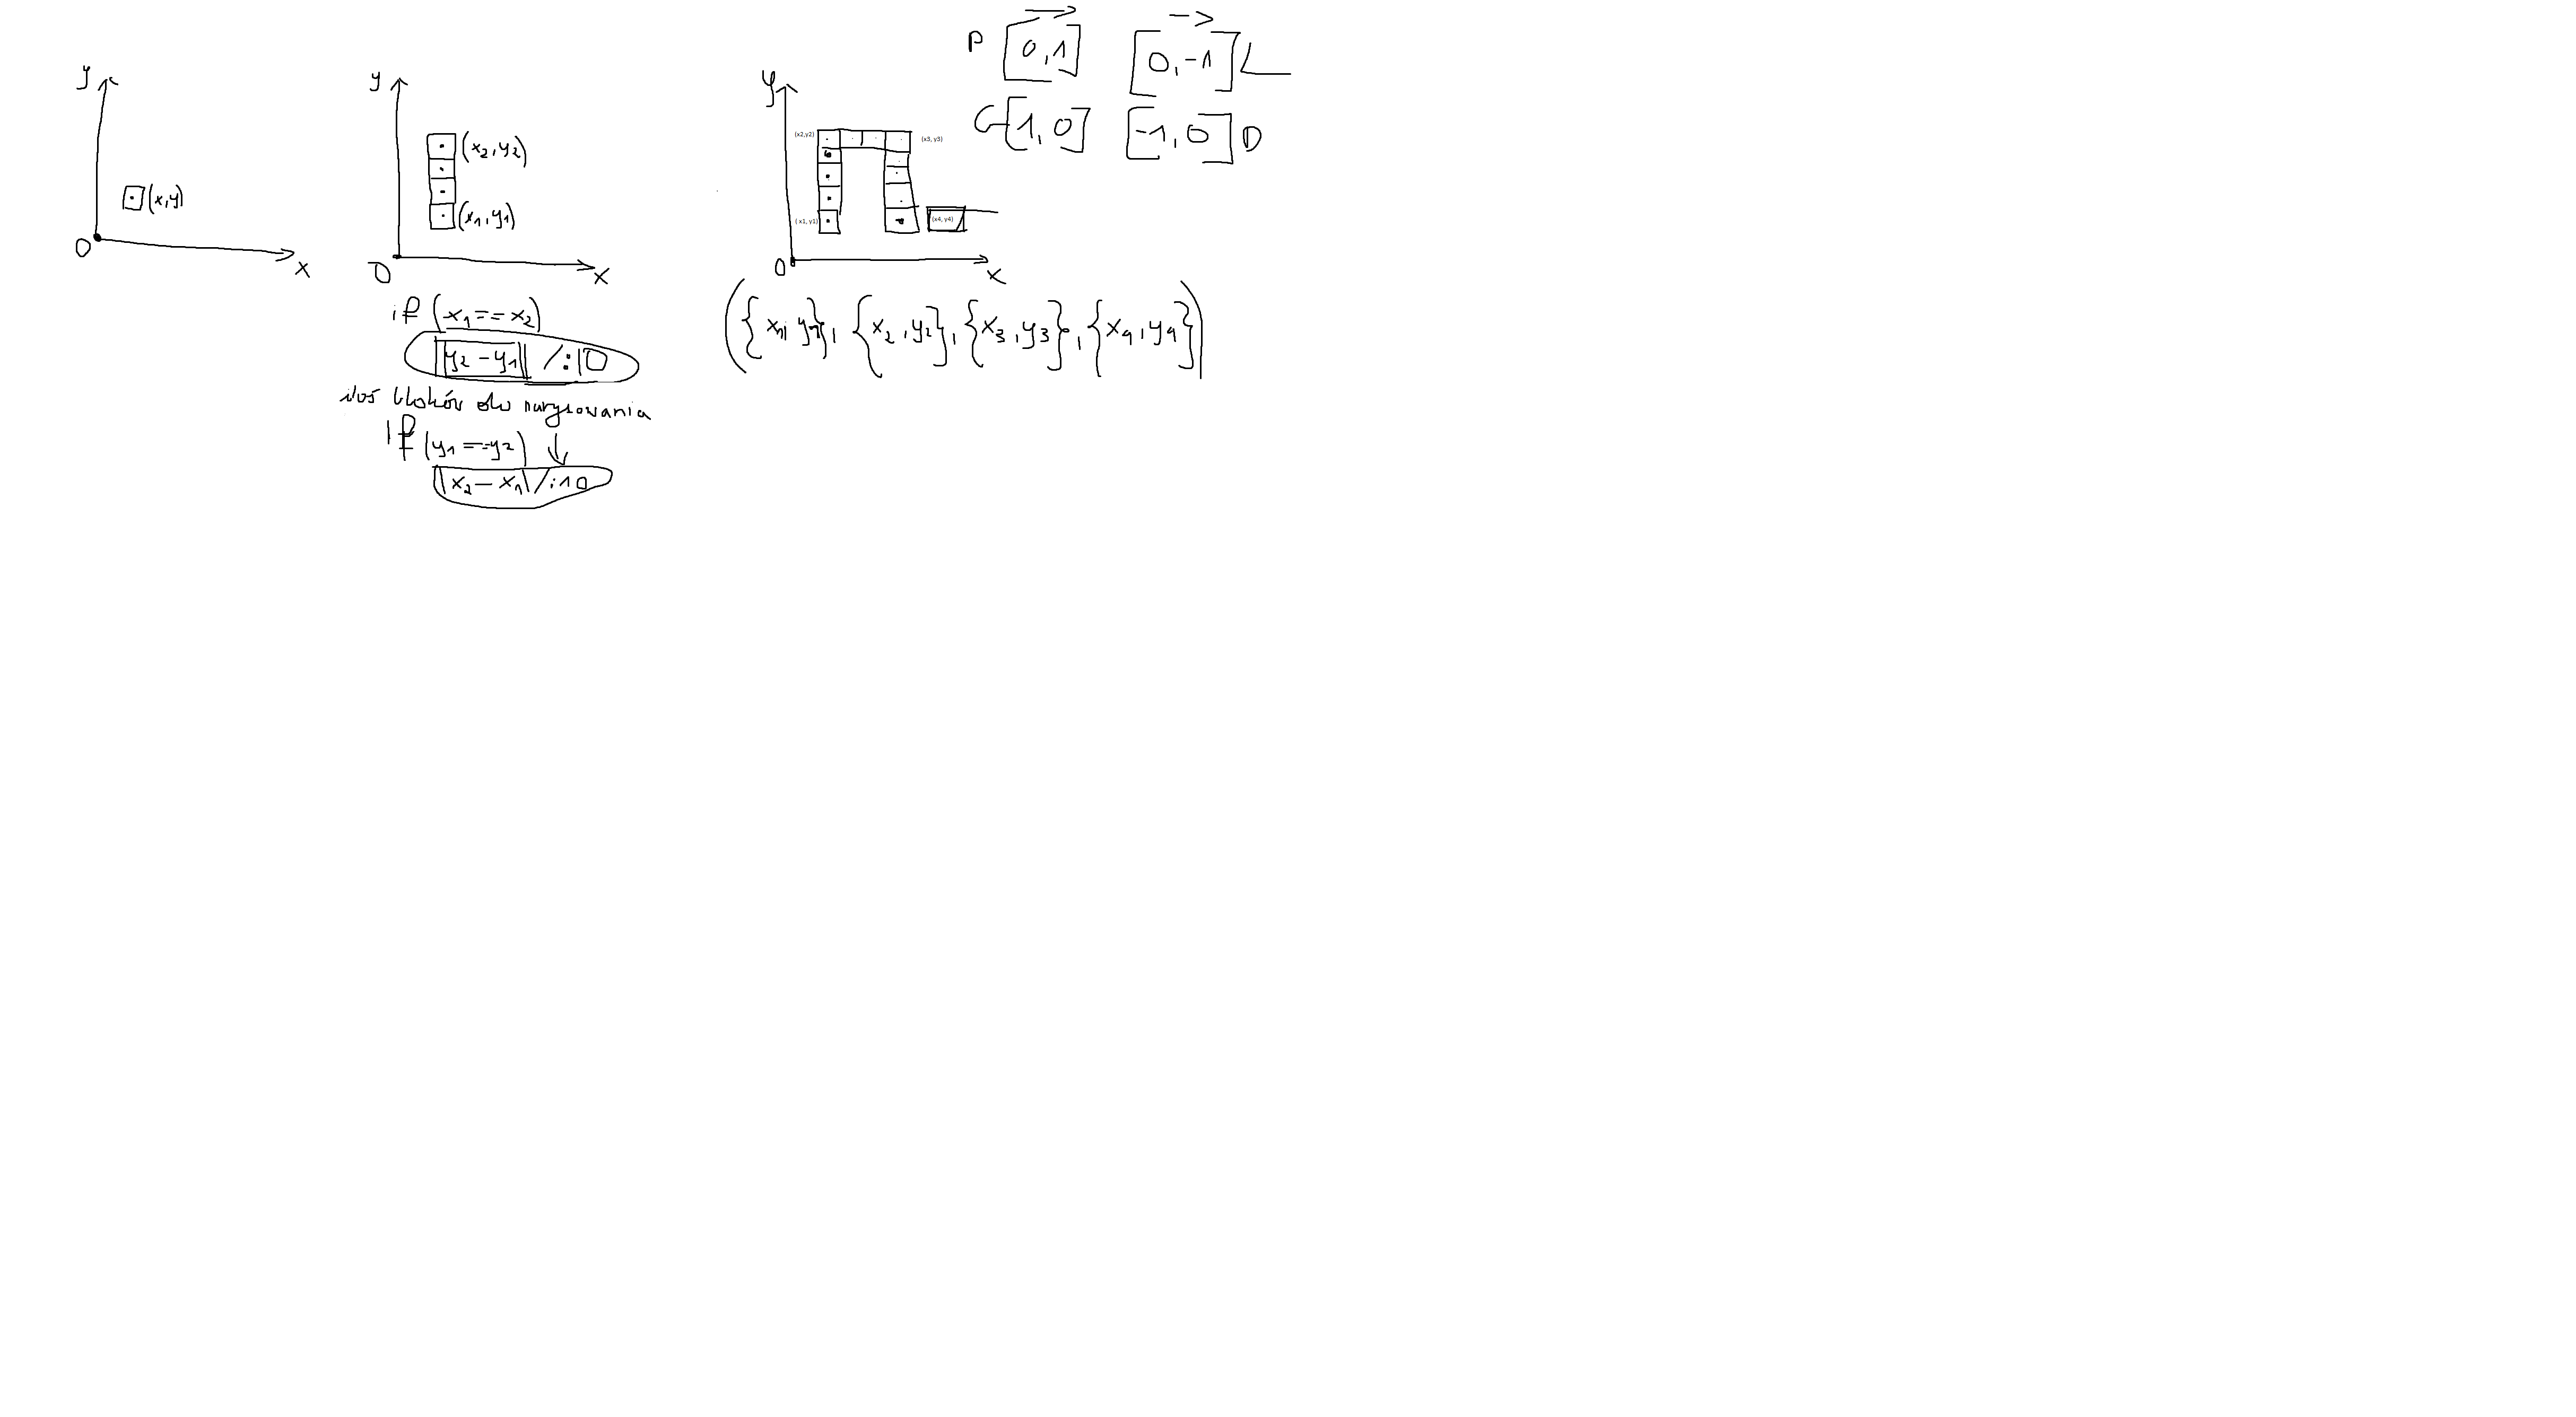 y
(x,y)
0
x
y
(x₂,y₂)
(x₁,y₁)
0
x
if (x₁==x₂)
|y₂-y₁| /:10
ilość bloków do narysowania
If (y₁==y₂)
|x₂-x₁| /:10
y
(x2,y2)
(x3, y3)
(x1, y1)
(x4, y4)
0
x
({x₁, y₁}, {x₂,y₂}, {x₃,y₃}, {x₄,y₄})
P [0,1] [0,-1] L
G [1,0] [-1,0] D